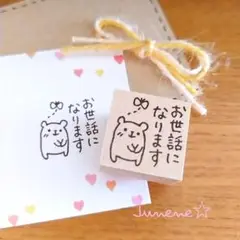 お世話に
なります
お世話に
なります
Junene☆